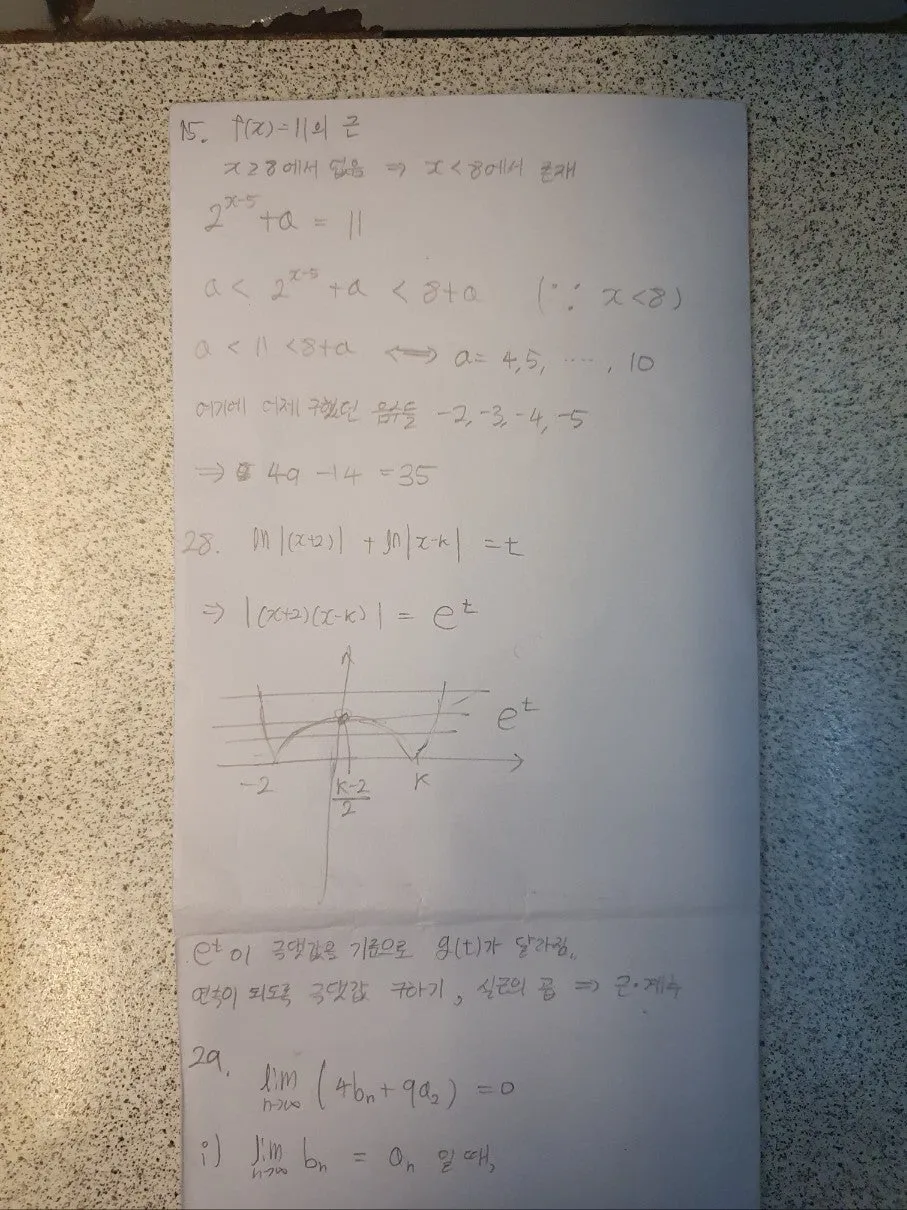 15. f(x)=11의 근
x≥8에서 없음 ⇒ x<8에서 존재
2^{x-5}+a = 11
a < 2^{x-5}+a < 8+a (∵ x<8)
a < 11 < 8+a ⟺ a = 4, 5, ‥‥, 10
여기에 어제 구했던 음수들 -2, -3, -4, -5
⇒ 49 -14 = 35
28. ln|(x+2)| + ln|x-k| = t
⇒ |(x+2)(x-k)| = e^t
e^t
-2 \frac{k-2}{2} k
e^t이 극댓값을 기준으로 g(t)가 달라짐.
연속이 되도록 극댓값 구하기, 실근의 곱 ⇒ 근·계수
29.
lim_{n→∞} (4b_n+9a_2) = 0
i) lim_{n→∞} b_n = a_n 일 때,